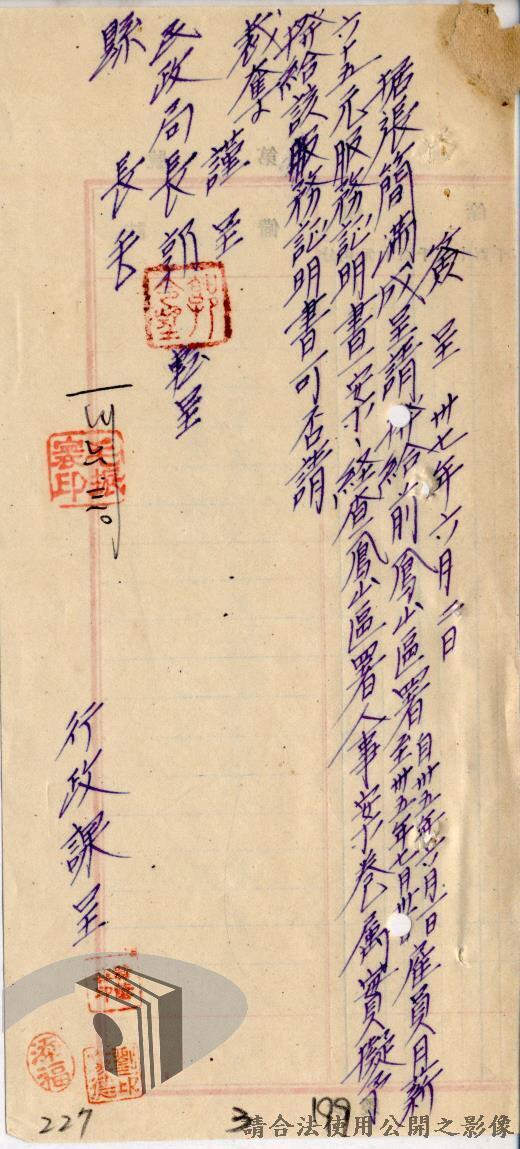 簽呈 卅七年六月二日
据張簡滿成呈請發給前鳳山區署 自卅五年六月一日 至卅五年七月卅日 雇員月薪
六十五元服務証明書一案、経查鳳山區署人事案卷属實擬予
發給該服務証明書可否請
裁奪
謹呈
民政局長郭
轉呈
縣長毛
行政課呈
劉印
添福
227
3
199
請合法使用公開之影像